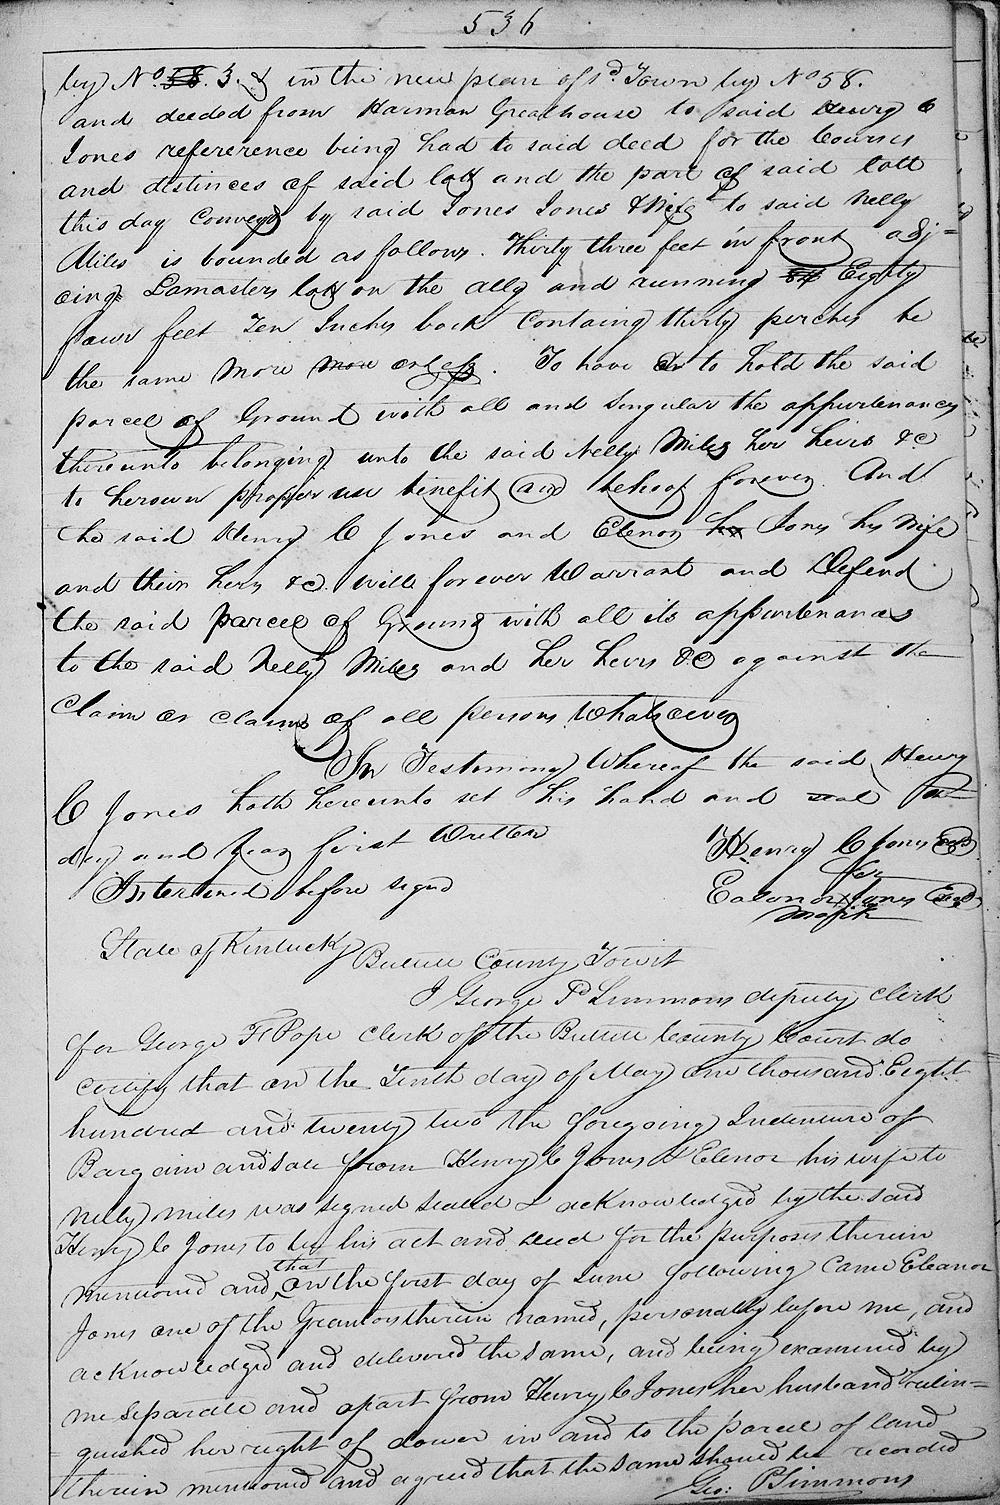 536
by No. 58. 3. & in the new plan of sd. Town by No 58.
and deeded from Harman Greathouse to said Henry C
Jones refererence being had to said deed for the Courses
and distinces of said lott and the part of said lott
this day Conveyd by said Jones Jones & Wife to said Nelly
Miles is bounded as follows. Thirty three feet in front adj=
cing Lamasters lott on the ally and running 84 Eighty
four feet Ten Inches back Containg thirty perches be
the same More more or less. To have & to hold the said
parcel of Ground with all and Singular the appurtenancys
thereunto belonging unto the said Nelly Miles her heirs &C
to herown propper use binefit and behoof forever. And
the said Henry C Jones and Elenor his Jones his Wife
and their heirs &C. will forever Warrant and Defend
the said parcel of Ground with all its appurtenanas
to the said Nelly Miles and her heirs &C against the
Claim or claims of all persons Whatsoever
In Testimony Whereof the said Henry
C Jones hath hereunto set his hand and seal the
day and year first Written
Henry C Jones Seal
Interlined before signd
her
Ealonor x Jones Seal
mark
State of Kentucky Bullitt County Towit
I George P Simmons deputy clerk
for George F Pope clerk of the Bullitt County Court do
certify that on the Tenth day of May one thousand Eight
hundred and twenty two the foregoing Indenture of
Bargain and sale from Henry C Jones & Elenor his wife to
Nelly Miles was signed sealed & acknowledged by the said
Henry C Jones to be his act and deed for the purposes therein
mentioned and that on the first day of June following Came Eleanor
Jones one of the Grantors therein named, personally before me, and
acknowledged and delivered the same, and being examined by
me separate and apart from Henry C Jones her husband relin=
quished her right of dower in and to the parcel of land
therein mentioned and agreed that the same should be recorded
Geo: P Simmons